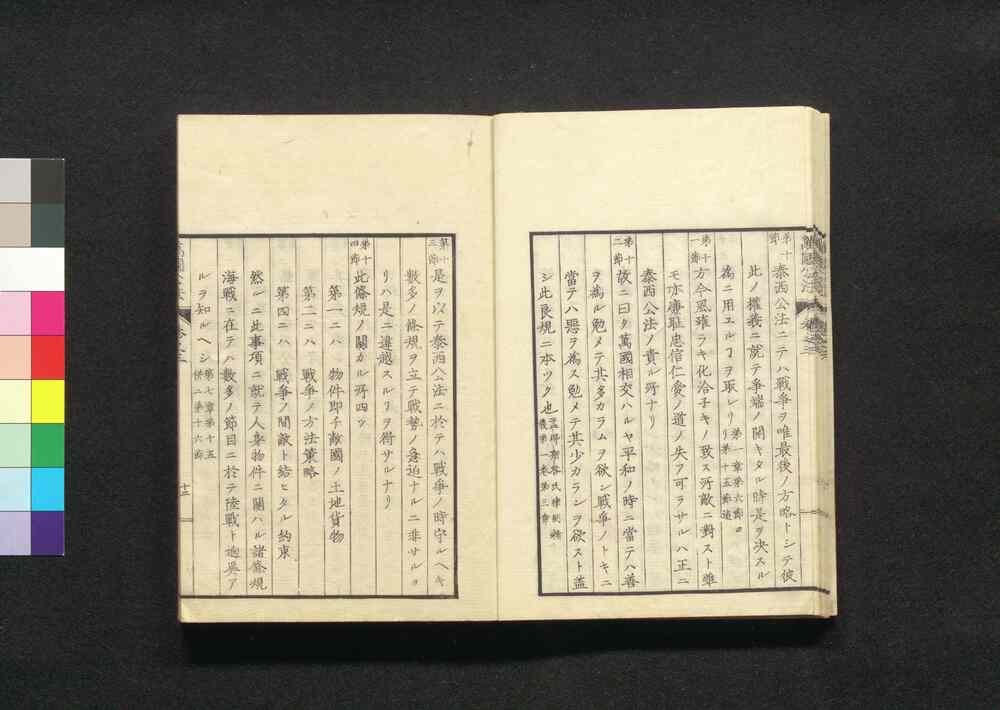 第十節
泰西公法ニテハ戦争ヲ唯最後ノ方略トシテ彼
此ノ權義ニ就テ争端ノ開キタル時是ヲ決スル
為ニ用ユルヿヲ取レリ第一章第六節ヨリ第十五節迄
第十一節
方今風雍ラキ化洽子キノ致ス所敵ニ對スト雖
モ亦廉耻忠信仁愛ノ道ノ失フ可ラサルハ正ニ
泰西公法ノ貴ル所ナリ
第十二節
故ニ曰ク萬國相交ハルヤ平和ノ時ニ當テハ善
ヲ為ル勉メテ其多カラムヲ欲シ戦争ノトキニ
當テハ悪ヲ為ス勉メテ其少カランヲ欲スト蓋
シ此良規ニ本ツク也
第十三節
是ヲ以テ泰西公法ニ於テハ戦争ノ時守ルヘキ
數多ノ條規ヲ立テ戦勢ノ急迫ナルニ非サルヨ
リハ是ニ違越スルヿヲ得サルナリ
第十四節
此條規ノ關カル所四ツ
第一ニハ 物件即チ敵國ノ土地貨物
第二ニハ 戦争ノ方法策略
第四ニハ 戦争ノ間敵ト結ヒタル約束
然ルニ此事項ニ就テ人身物件ニ關ハル諸條規
海戦ニ在テハ數多ノ節目ニ於テ陸戦ト逈異ア
ルヲ知ルヘシ第七章第十五併ニ第十六節
十三